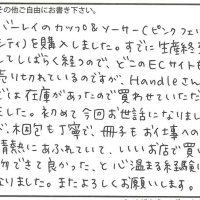 その他ご自由にお書き下さい。
バーレイのカップ&ソーサー(ピンクフェリ
シティ)を購入しました。すでに生産終
してしばらく経つので、どこのECサイトも
売りきれているのですが、Handleさん
では在庫があったので買わせていただ
ました。初めて今回お世話になりまし
が、本図包も丁寧で、冊子もお仕事への
情熱にあふれていて、いいお店で買い
物できて良かった、と心温まる経験に
なりました。またよろしくお願いします。